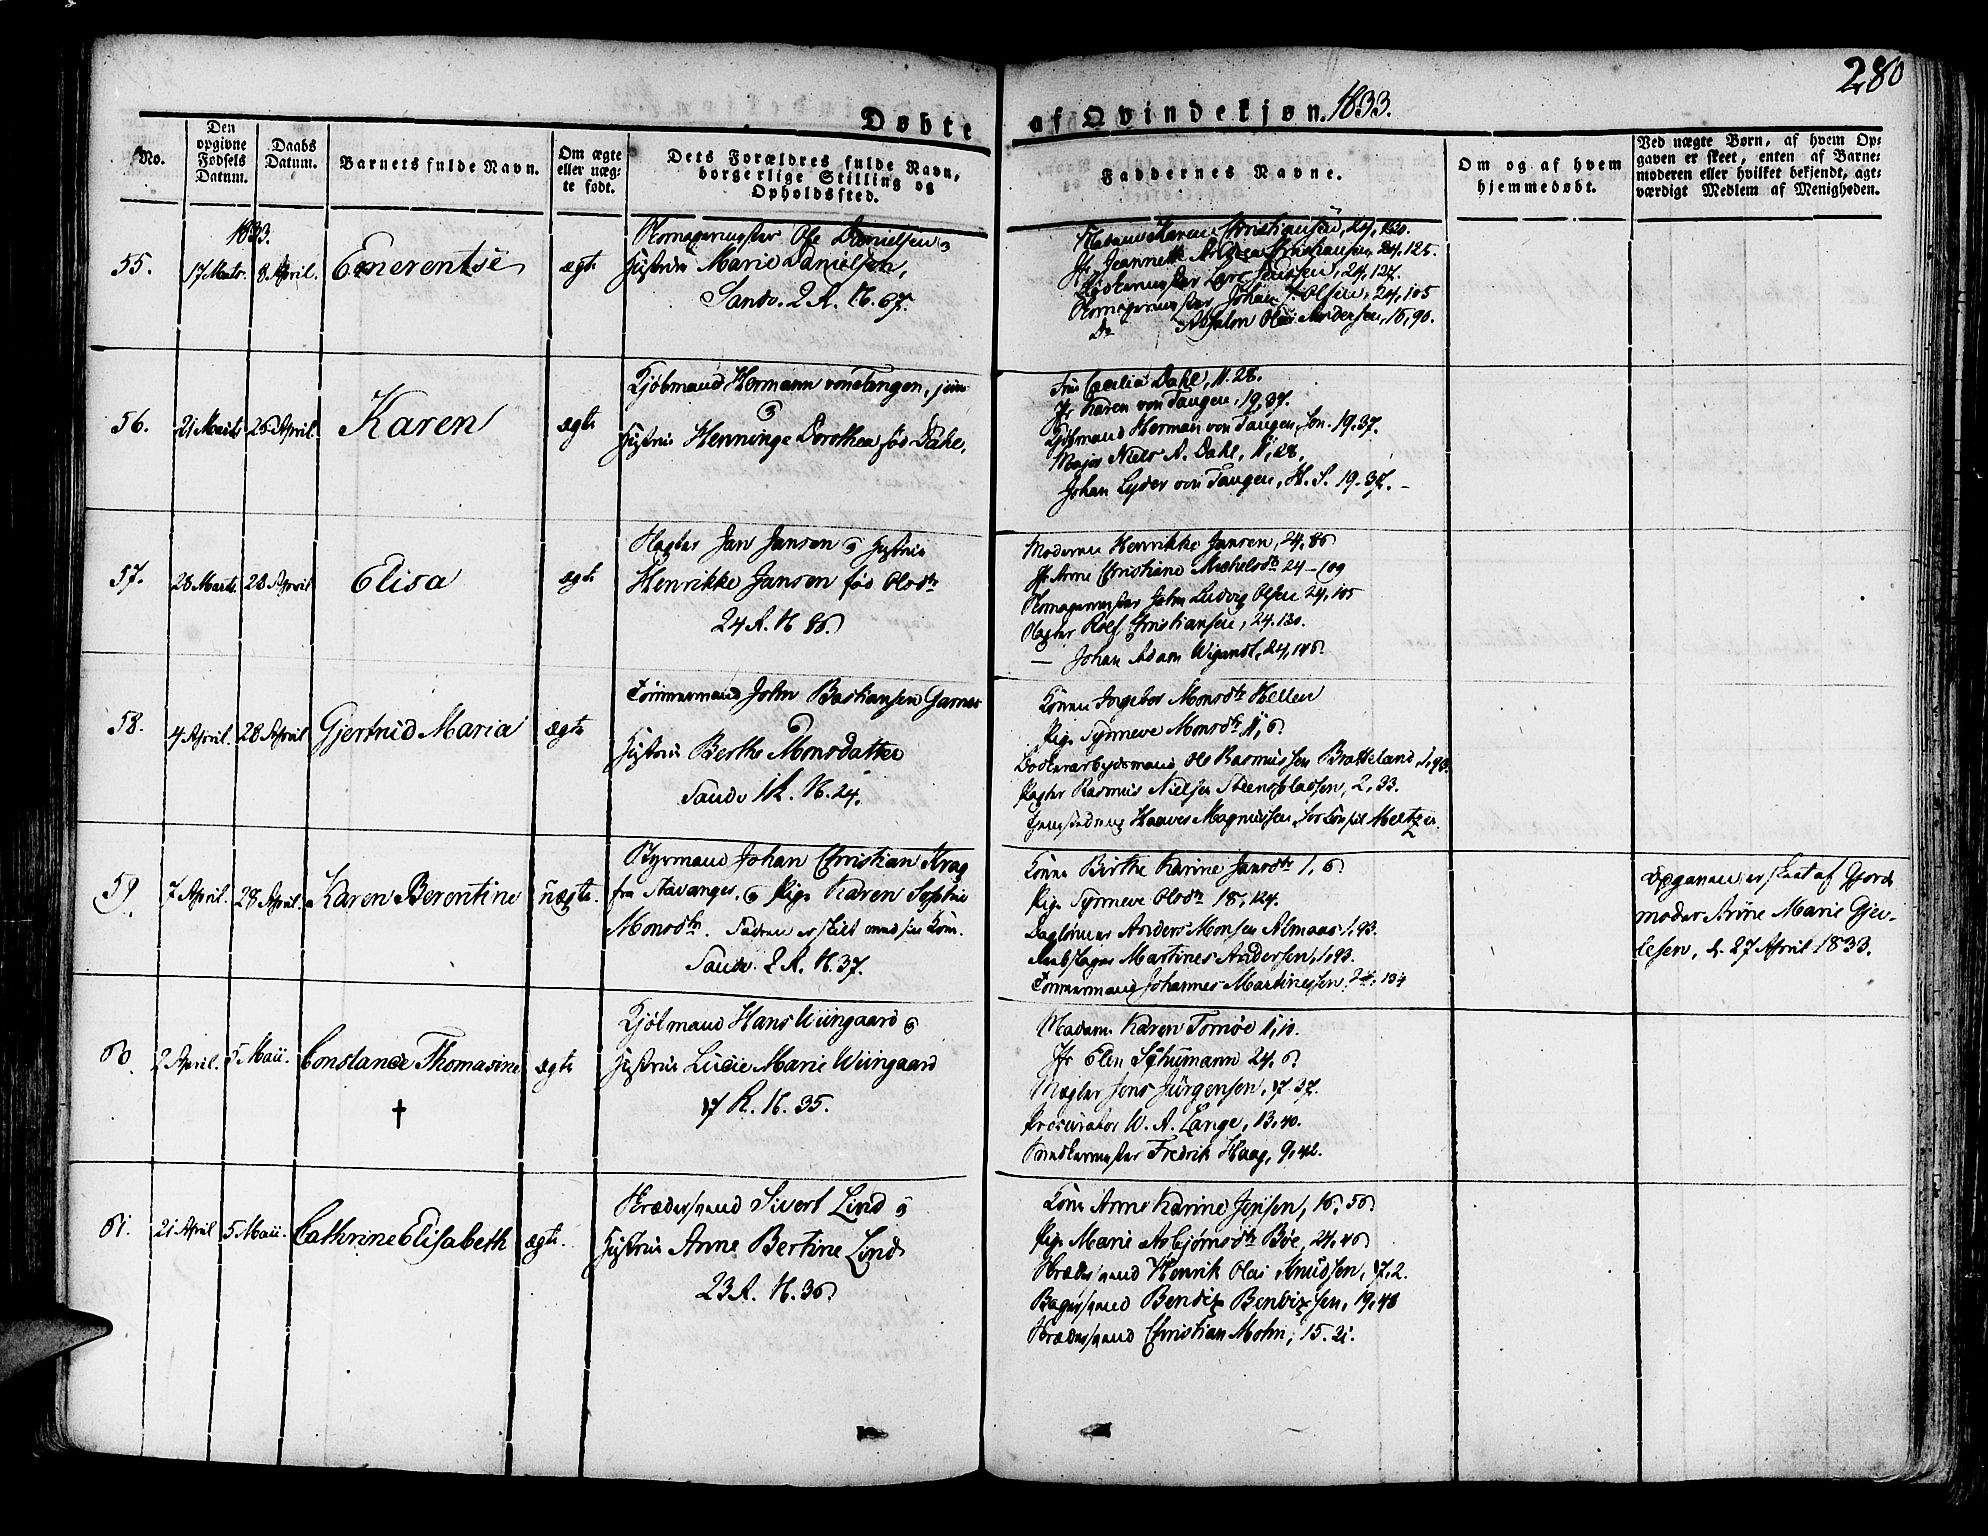 280
Døbte af Qvindekjøn. 1833.
No.
Den opgivne Fødsels Datum.
Daabs Datum.
Barnets fulde Navn.
Om ægte eller uæg- te født.
Dets Forældres fulde Navn, borgerlige Stilling og Opholdssted.
Faddernes Navne.
Om og af hvem hjemmedøbt.
Ved uægte Børn, af hvem Op- gaven er skeet, enten af Barne- moderen eller hvilket bekjendt, agt- værdigt Medlem af Menigheden.
1833.
55. 17 Marts. 8 April. Emerentse ægte
Skomagermester Ole Danielsen &
Hustrue Marie Danielsen,
Sandv. 2 R. N. 67.
Madame Karen Christiansen, 24, 130.
Jfr Jeannette Andrea Christiansen 24, 125.
Bødkermester Lars 24, 127.
Skomagermester Johan L. Olsen, 24, 105
Do Absalon Olai Andersen, 16, 90.
56. 21 Marts 26 April. Karen ægte
Kjøbmand Hermann von Tangen, jun
&
Hustrue Henninge Dorothea fød Dahl.
Frue Cæcilia Dahl, 11. 28.
Jfr Karen von Tangen, 19, 37.
Kjøbmand Herman von Tangen, sen. 19. 37.
Major Niels A. Dahl, 11, 28.
Johan Lyder von Tangen, H. S. 19. 37. -
57. 28 Marts. 28 April Elisa ægte
Slagter Jan Jansen & Hustrue
Henrikke Jansen fød Olsdtr
24 R. N 86.
Moderen Henrikke Jansen, 24, 86
Jfr Anne Christiane Michelsdtr 24 - 109
Skomagermester John Ludvig Olsen 24, 105
Slagter Rolf Christiansen, 24. 130.
— Johan Adam Wigandt, 24, 146.
58. 4 April. 28 April Gjertrud Maria ægte
Tømmermand John Bastiansen Garnes
&
Hustrue Berthe Monsdatter
Sandv 1 R. N. 24.
Konen Ingebor Monsdtr Hellen
Pige Synneve Monsdtr 11, 6
Bodkerarbeydsmand Ole Rasmussen Bratteland, 1, 93.
Slagter Rasmus Nielsen Steensfladsen, 2, 33.
Haaver Magnussen, for Consul Meltzer.
59. 7 April. 28 April. Karen Berentine uægte.
Styrmand Johan Christian Krag
fra Stavanger, & Pige Karen Sophie
Monsdtr. Faderen er skilt med sin Kone.
Sandv. 2 R. N. 37.
Kone Birthe Karine Jansdtr 1, 6
Pige Synneve Olsdtr 18, 124.
Daglønner Anders Monsen Almaas 1, 93.
Rebslager Martines Andersen, 1, 93.
Tømmermand Johannes Martinessen 24, 104
Opgaven er skeet af Gjord-
moder Anne Marie Gjer-
lesen, d. 27 April 1833.
60. 2 April. 5 Maii. Constance Thomasine ægte
†
Kjøbmand Hans Wiingaard &
Hustrue Lucie Marie Wiingaard
17 R. N. 35.
Madame Karen Tornøe 11, 10.
Jfr Elen Schumann 24. 6
Mægler Jens Jürgensen, 17 37.
Procurator W. A. Lange, 13, 40.
Snedkermester Fredrik Haag, 9, 42.
61. 21 April 5 Maii. Cathrine Elisabeth ægte.
Skræders/vend Sivert Lind &
Hustrue Anne Bertine Lind
23 R. N. 36
Kone Anne Karine Jensen, 16, 56
Pige Marie Asbjørnsdtr Bøe, 24, 46
Skræders/vend Henrik Olai Knudsen, 17, 2.
Bagers/vend Bendix Bendixsen, 19, 48
Skræders/vend Christian Mohn, 15. 21.